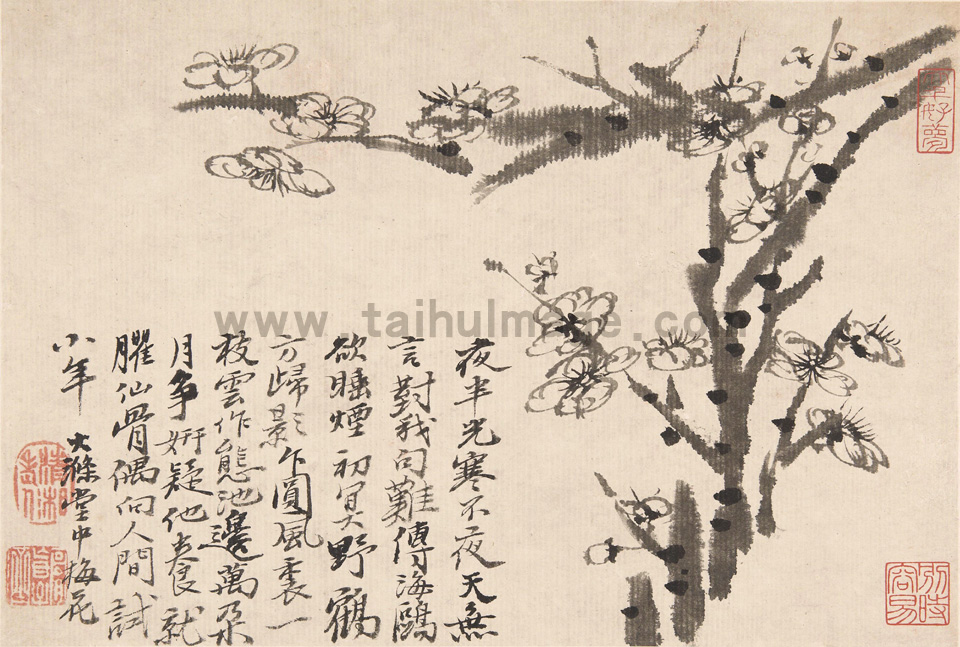 夜半光寒不夜天無
言對我句難傳海鷗
欲睡煙初冥野鶴
方歸影乍圓風裊一
枝雲作態池邊萬朶
月爭妍疑他養就
臞仙骨偶向人間試
小年
大滌堂中梅花
清湘老人
別時容易
www.taihuImage.com